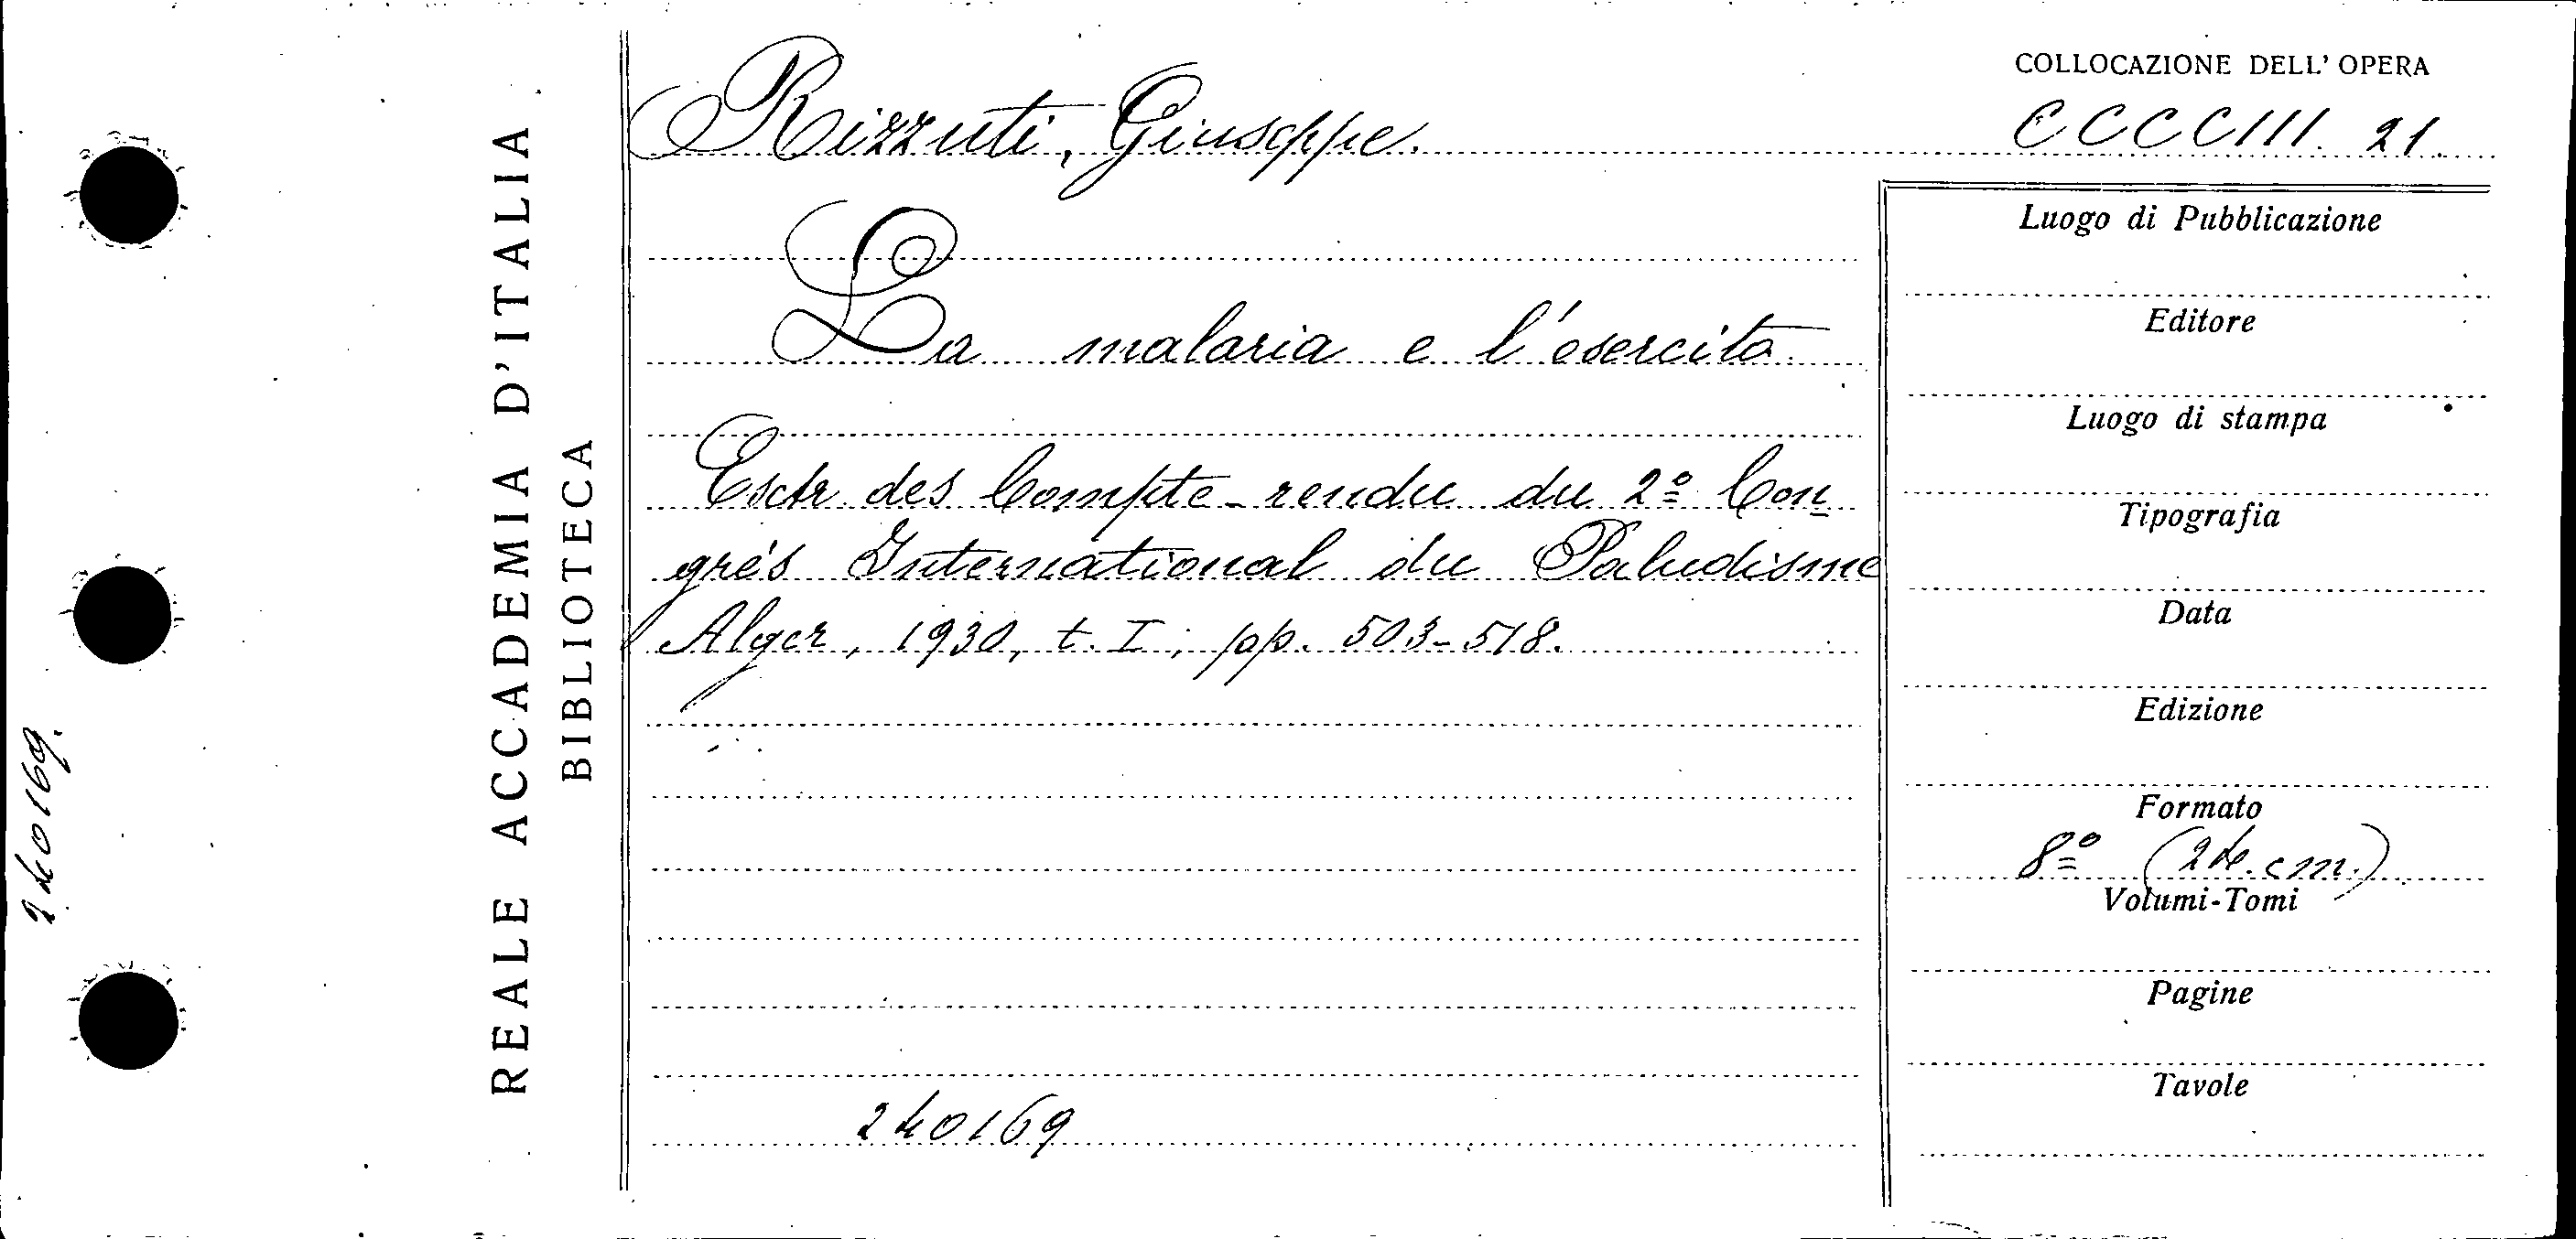 240169.
REALE ACCADEMIA D'ITALIA
BIBLIOTECA
Rizzuti, Giuseppe.
La malaria e l'esercito.
Estr. des Compte-rendu du 2º Con
grés International du Paludisme
Alger, 1930, t. I; pp. 503-518.
240169
COLLOCAZIONE DELL' OPERA
CCCCIII. 21.
Luogo di Pubblicazione
Editore
Luogo di stampa
Tipografia
Data
Edizione
Formato
8º (24.cm.)
Volumi-Tomi
Pagine
Tavole